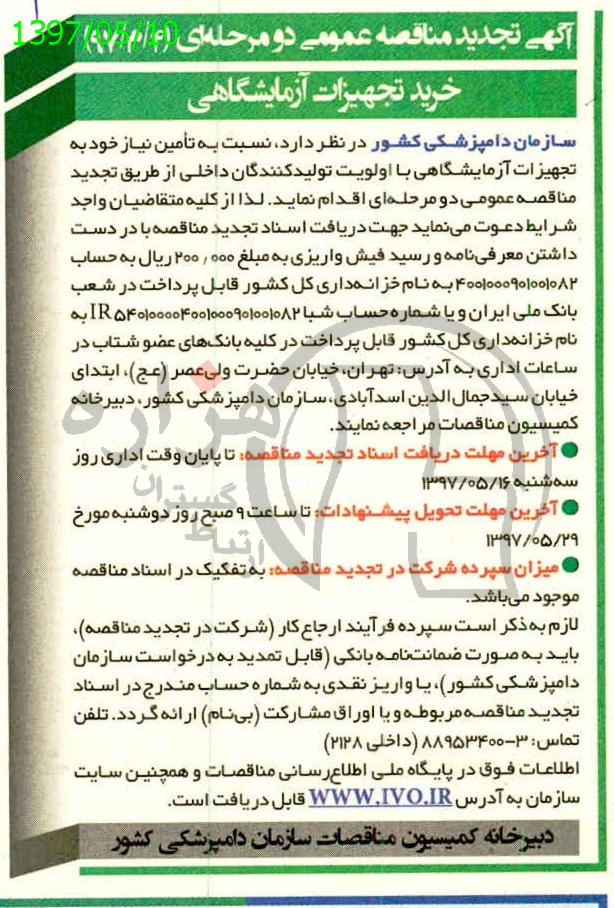 1397/05/10
آگهی تجدید مناقصه عمومی دو مرحله‌ای
خرید تجهیزات آزمایشگاهی
سازمان دامپزشکی کشور در نظر دارد، نسبت به تأمین نیاز خود به
تجهیزات آزمایشگاهی با اولویت تولیدکنندگان داخلی از طریق تجدید
مناقصه عمومی دو مرحله‌ای اقدام نماید. لذا از کلیه متقاضیان واجد
شرایط دعوت می‌نماید جهت دریافت اسناد تجدید مناقصه با در دست
داشتن معرفی‌نامه و رسید فیش واریزی به مبلغ ۲۰۰٫۰۰۰ ریال به حساب
۴۰۰۱۰۰۰۹۰۱۰۰۱۰۸۲ به نام خزانه‌داری کل کشور قابل پرداخت در شعب
بانک ملی ایران و یا شماره حساب شبا IR۵۴۰۱۰۰۰۰۴۰۰۱۰۰۰۹۰۱۰۰۱۰۸۲ به
نام خزانه‌داری کل کشور قابل پرداخت در کلیه بانک‌های عضو شتاب در
ساعات اداری به آدرس: تهران، خیابان حضرت ولی‌عصر (عج)، ابتدای
خیابان سیدجمال الدین اسدآبادی، سازمان دامپزشکی کشور، دبیرخانه
کمیسیون مناقصات مراجعه نمایند.
● آخرین مهلت دریافت اسناد تجدید مناقصه: تا پایان وقت اداری روز
سه‌شنبه ۱۳۹۷/۰۵/۱۶
● آخرین مهلت تحویل پیشنهادات: تا ساعت ۹ صبح روز دوشنبه مورخ
۱۳۹۷/۰۵/۲۹
● میزان سپرده شرکت در تجدید مناقصه: به تفکیک در اسناد مناقصه
موجود می‌باشد.
لازم به ذکر است سپرده فرآیند ارجاع کار (شرکت در تجدید مناقصه)،
باید به صورت ضمانت‌نامه بانکی (قابل تمدید به درخواست سازمان
دامپزشکی کشور)، یا واریز نقدی به شماره حساب مندرج در اسناد
تجدید مناقصه مربوطه و یا اوراق مشارکت (بی‌نام) ارائه گردد. تلفن
تماس: ۳-۸۸۹۵۳۴۰۰ (داخلی ۲۱۲۸)
اطلاعات فوق در پایگاه ملی اطلاع‌رسانی مناقصات و همچنین سایت
سازمان به آدرس WWW.IVO.IR قابل دریافت است.
دبیرخانه کمیسیون مناقصات سازمان دامپزشکی کشور
هزاره
گستران
ارتباط